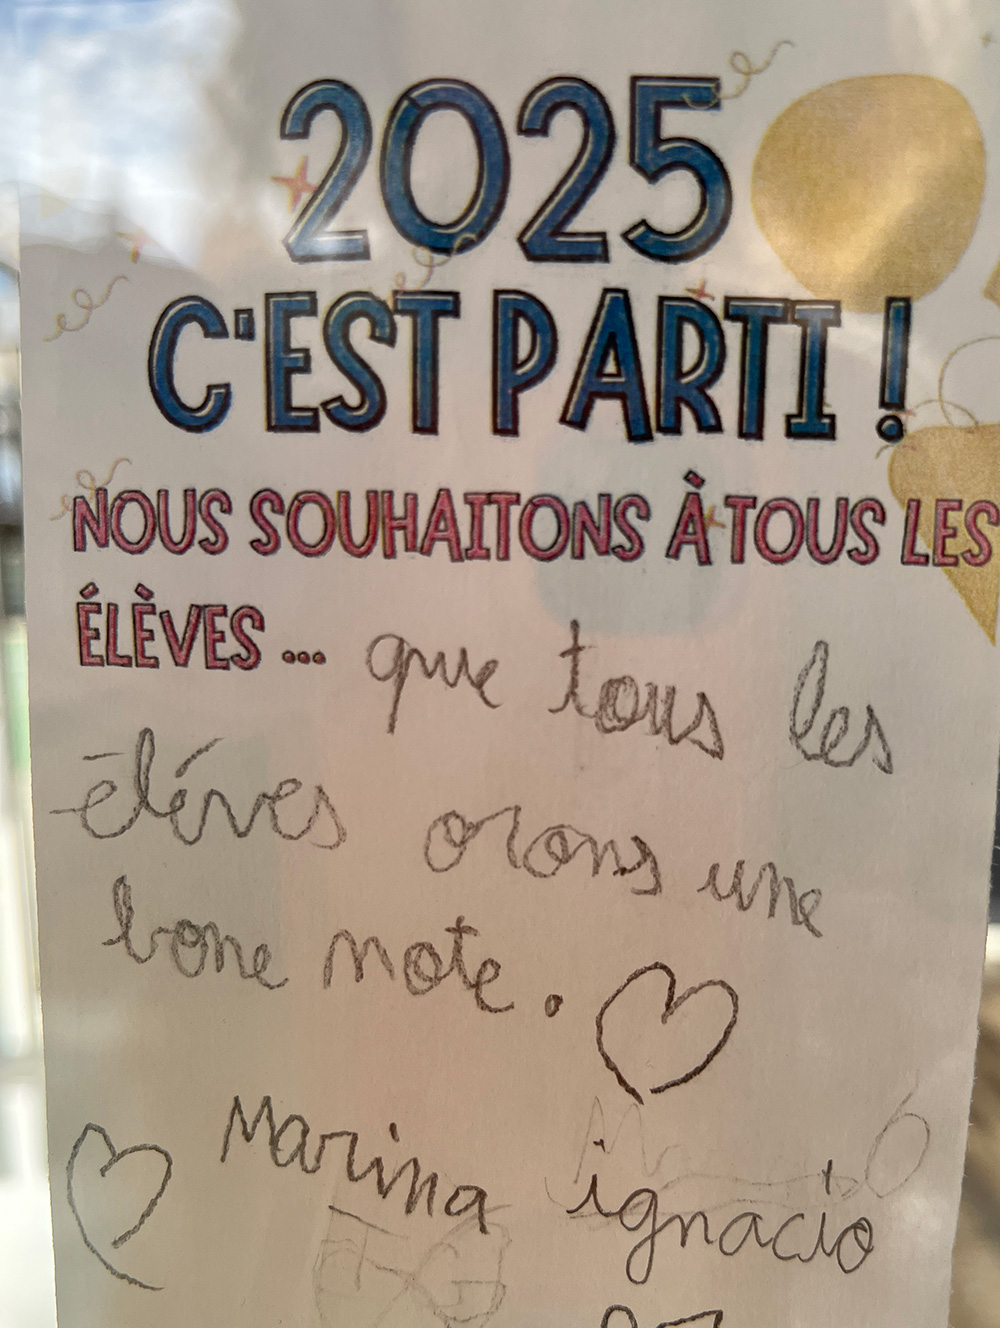 2025
C'EST PARTI !
NOUS SOUHAITONS À TOUS LES
ÉLÈVES ... que tous les
éléves orons une
bone note.
Marina ignacio